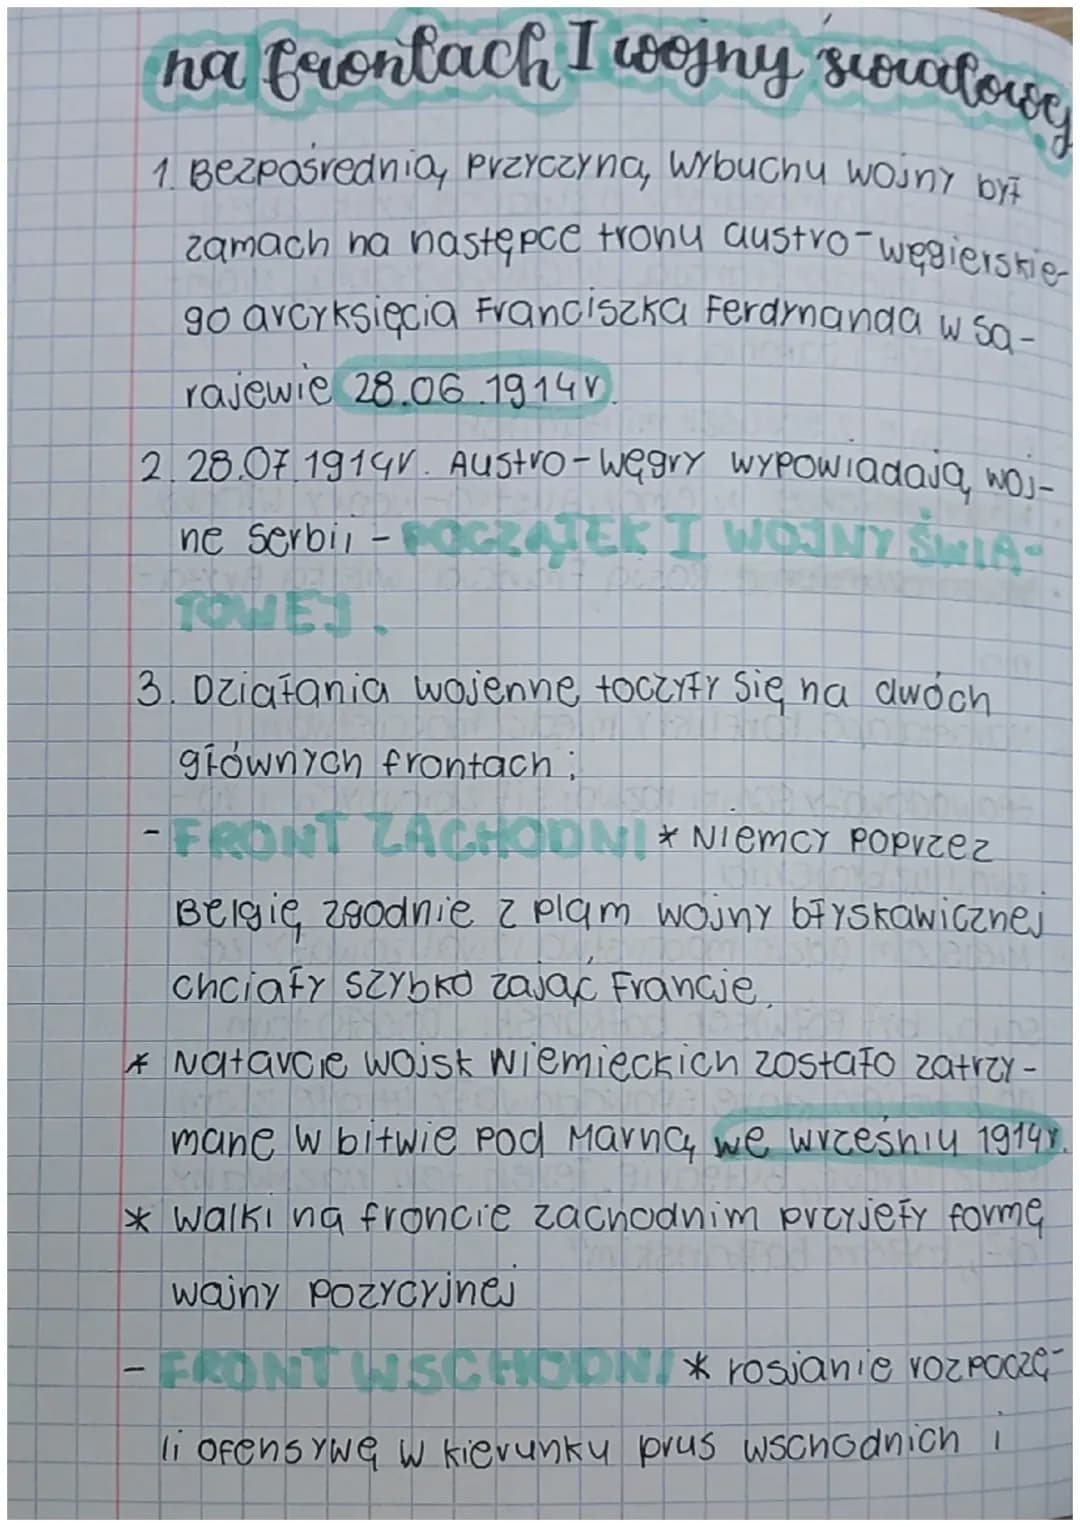 na frontach I wojny światowej
1. Bezpośrednią przyczyną wybuchu wojny był
zamach na następcę tronu austro-węgierskie-
go arcyksięcia Franciszka Ferdynanda w Sa-
rajewie 28.06.1914r.
2. 28.07.1914r. Austro-Węgry wypowiadają woj-
nę Serbii - POCZĄTEK I WOJNY ŚWIA-
TOWEJ.
3. Działania wojenne toczyły się na dwóch
głównych frontach:
- FRONT ZACHODNI * Niemcy poprzez
Belgię zgodnie z planm wojny błyskawicznej
chciały szybko zająć Francję.
* Natarcie wojsk niemieckich zostało zatrzy-
mane w bitwie pod Marną we wrześniu 1914r.
* Walki na froncie zachodnim przyjeły formę
wojny pozycyjnej
- FRONT WSCHODNI * rosjanie rozpoczę-
li ofensywę w kierunku prus wschodnich i